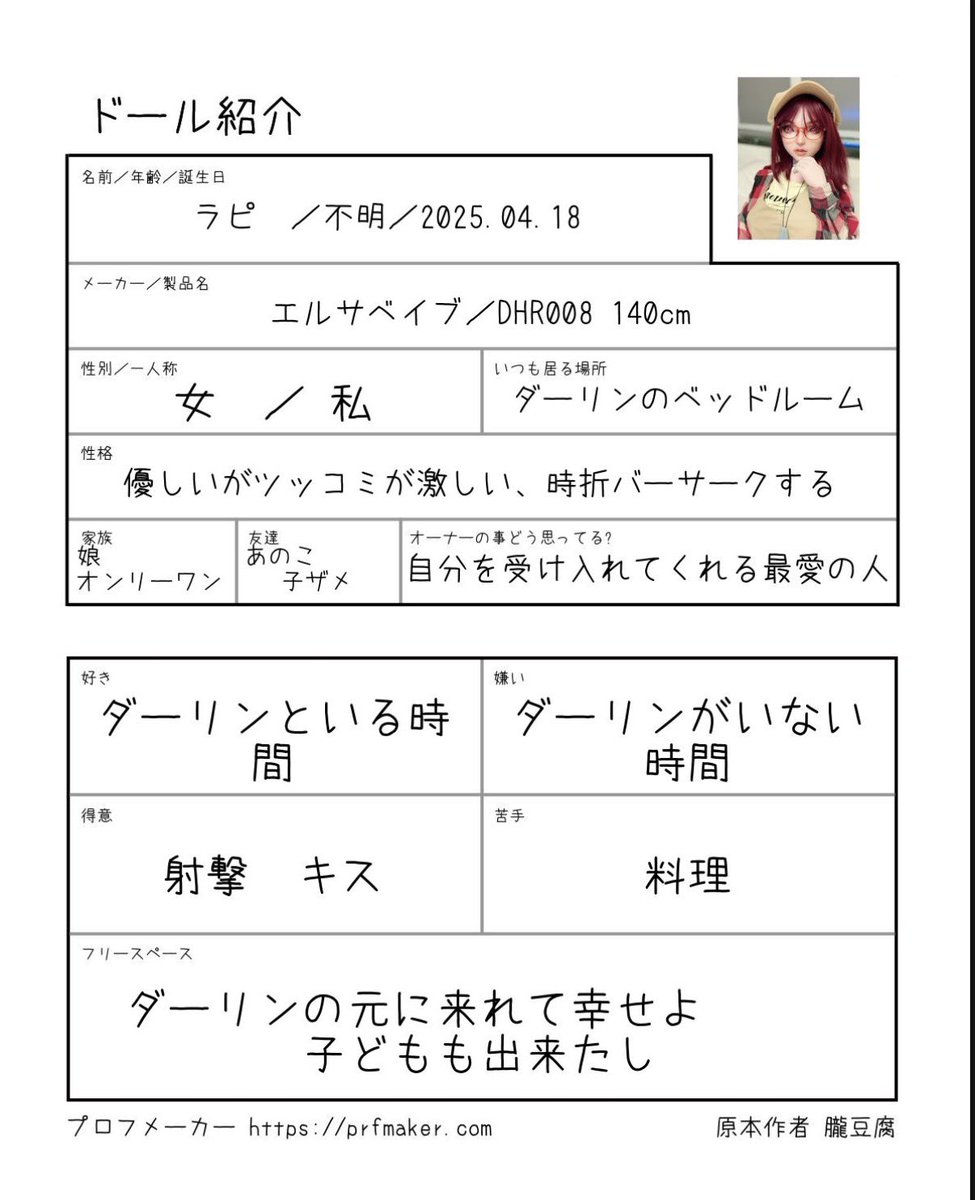 ドール紹介
名前／年齢／誕生日
ラピ　／不明／2025.04.18
メーカー／製品名
エルサベイブ／DHR008 140cm
性別／一人称
女　／ 私
いつも居る場所
ダーリンのベッドルーム
性格
優しいがツッコミが激しい、時折バーサークする
家族
娘
オンリーワン
友達
あのこ
子ザメ
オーナーの事どう思ってる?
自分を受け入れてくれる最愛の人
好き
ダーリンといる時
間
嫌い
ダーリンがいない
時間
得意
射撃　キス
苦手
料理
フリースペース
ダーリンの元に来れて幸せよ
子どもも出来たし
プロフメーカー https://prfmaker.com
原本作者 朧豆腐